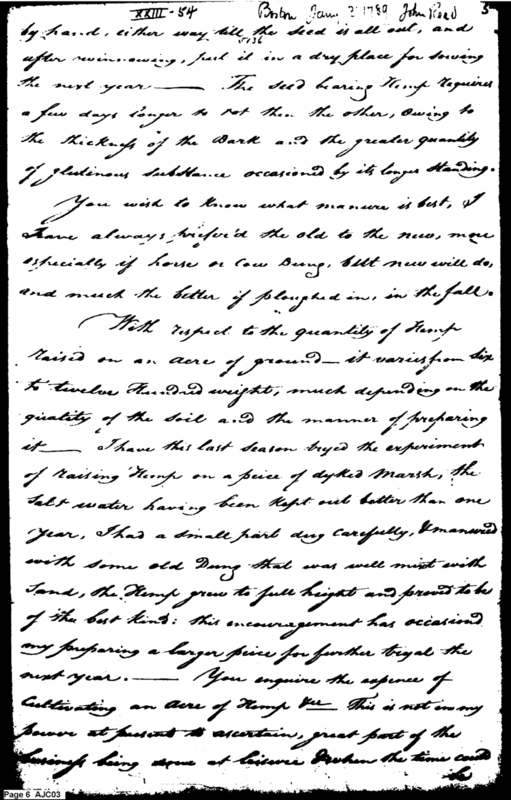 XXIII-54 Boston Jany 2 1789 John Read 5
by hand, either way till the seed is all out, and
5136
after winnowing, put it in a dry place for sowing
the next year — The seed bearing Hemp requires
a few days longer to rot then the other, owing to
the thickness of the Bark and the greater quantity
of glutinous substance occasioned by its longer standing.
You wish to know what manure is best, I
have always prefer'd the old to the new, more
especially if horse or Cow Dung, but new will do,
and much the better if ploughed in, in the fall.
With respect to the quantity of Hemp
raised on an acre of ground — it varies from six
to twelve Hundred weight, much depending on the
quality of the soil and the manner of preparing
it — I have this last season tryed the experiment
of raising Hemp on a peice of dyked Marsh, the
Salt water having been kept out better than one
year, I had a small part dug carefully, & manured
with some old Dung that was well mixt with
Sand, the Hemp grew to full height and proved to be
of the best kind: this encouragement has occasiond
my preparing a larger peice for further tryal the
next year. — You enquire the expence of
Cultivating an acre of Hemp &c — This is not in my
power at present to ascertain, great part of the
business being done at leisure & when the time could
be
Page 6 AJC03